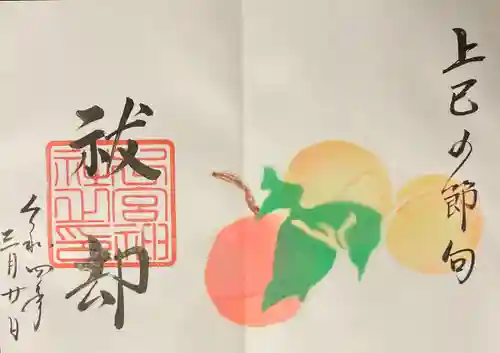 上巳の節句
祓却
令和四年
三月廿日